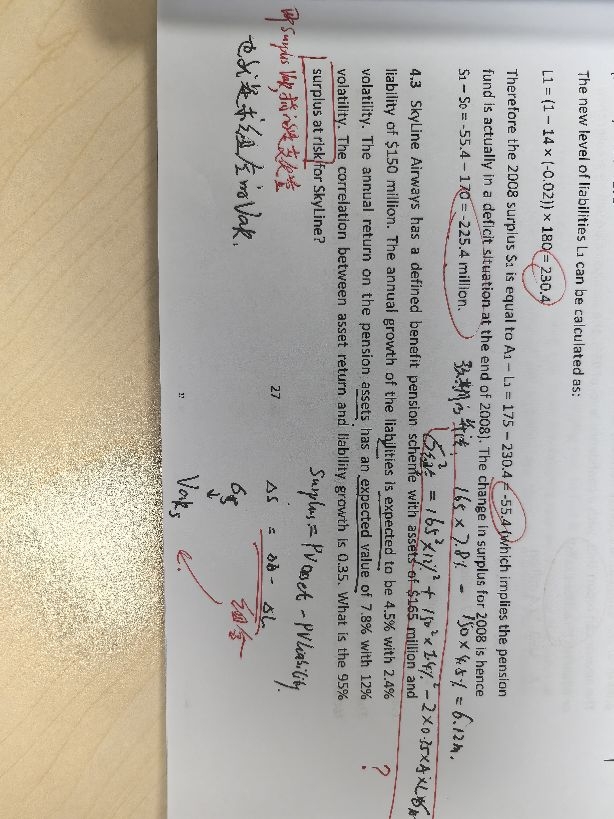 The new level of liabilities L1 can be calculated as:
L1 = (1 − 14 × (-0.02)) × 180 = 230.4
Therefore the 2008 surplus S1 is equal to A1 − L1 = 175 − 230.4 = -55.4 (which implies the pension
fund is actually in a deficit situation at the end of 2008). The change in surplus for 2008 is hence
S1 − S0 = -55.4 − 170 = -225.4 million.
165 × 7.8% − 150 × 4.5% = 6.12m.
= 165² × 12%² + 150² × 2.4%² − 2 × 0.35 × A × L
4.3 SkyLine Airways has a defined benefit pension scheme with assets of $165 million and
liability of $150 million. The annual growth of the liabilities is expected to be 4.5% with 2.4%
volatility. The annual return on the pension assets has an expected value of 7.8% with 12%
volatility. The correlation between asset return and liability growth is 0.35. What is the 95%
surplus at risk for SkyLine?
?
Surplus = PV asset − PV liability.
ΔS = ΔA − ΔL
组合
VaRs
27